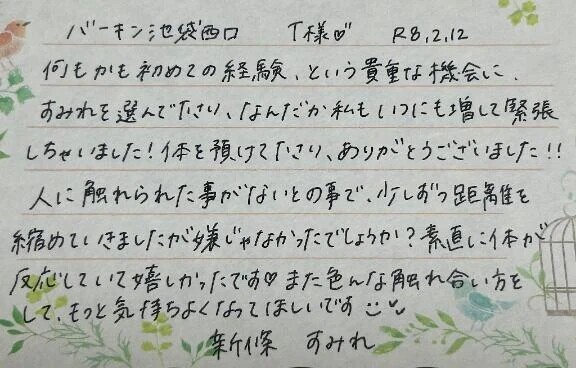 バーキン池袋西口 T様♡ R8.2.12
何もかも初めての経験、という貴重な機会に、
すみれを選んでくださり、なんだか私もいつにも増して緊張
しちゃいました!体を預けてくださり、ありがとうございました!!
人に触れられた事がないとの事で、少しずつ距離を
縮めていきましたが嫌じゃなかったでしょうか?素直に体が
反応していて嬉しかったです♡また色んな触れ合い方を
して、もっと気持ちよくなってほしいです
新條 すみれ